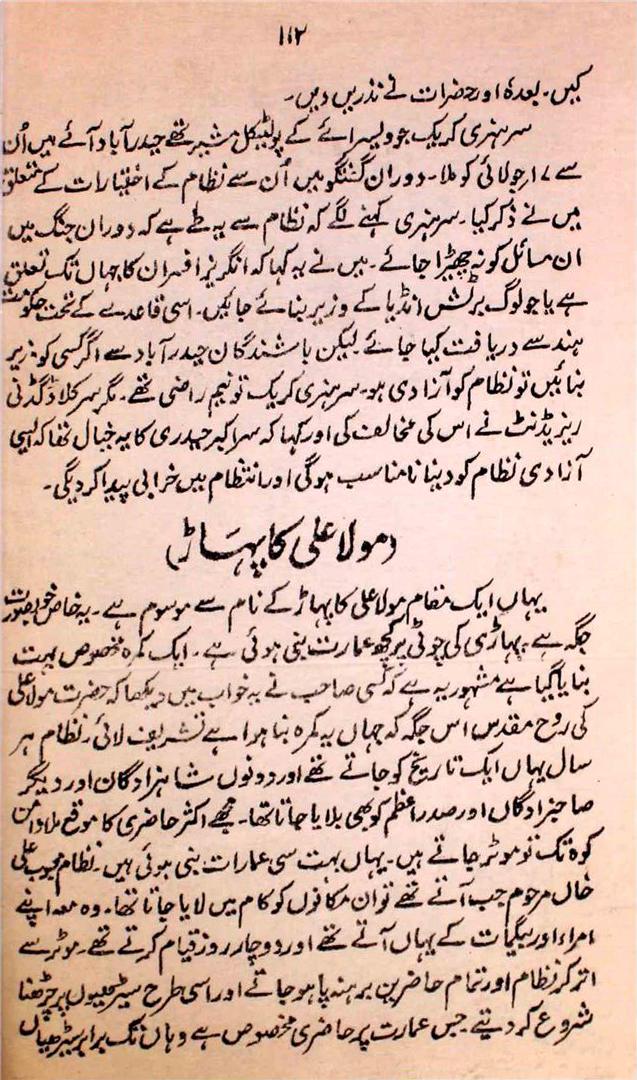 ۱۱۲
کیں۔ بعدہٗ اور حضرات نے نذریں دیں۔
سر ہنری کریک جو ویسرائے کے پولٹیکل مشیر تھے حیدرآباد آئے میں اُن
سے ۱۷ جولائی کو ملا۔ دوران گفتگو میں اُن سے نظام کے اختیارات کے متعلق
میں نے ذکر کیا۔ سر ہنری کہنے لگے کہ نظام سے یہ طے ہے کہ دوران جنگ میں
ان مسائل کو نہ چھیڑا جائے۔ میں نے یہ کہا کہ انگریز افسران کا جہاں تک تعلق
ہے یا جو لوگ برٹش انڈیا کے وزیر بنائے جائیں۔ اسی قاعدے کے تحت حکومت
ہند سے دریافت کیا جائے لیکن باشندگان حیدرآباد سے اگر کسی کو وزیر
بنائیں تو نظام کو آزادی ہو۔ سر ہنری کریک تو نیم راضی تھے۔ مگر سر کلاڈ گڈنی
ریزیڈنٹ نے اس کی مخالفت کی اور کہا کہ سر اکبر حیدری کا یہ خیال تھا کہ ایسی
آزادی نظام کو دینا نامناسب ہوگی اور انتظام میں خرابی پیدا کر دیگی۔
(مولا علی کا پہاڑ)
یہاں ایک مقام مولا علی کا پہاڑ کے نام سے موسوم ہے۔ یہ خاص خوبصورت
جگہ ہے۔ پہاڑی کی چوٹی پر کچھ عمارت بنی ہوئی ہے۔ ایک کمرہ مخصوص بہت
بنایا گیا ہے مشہور یہ ہے کہ کسی صاحب نے یہ خواب میں دیکھا کہ حضرت مولا علی
کی روح مقدس اس جگہ کہ جہاں یہ کمرہ بنا ہوا ہے تشریف لائی۔ نظام ہر
سال یہاں ایک تاریخ کو جاتے تھے اور دونوں شاہزادگان اور دیگر
صاحبزادگاں اور صدر اعظم کو بھی بلایا جاتا تھا۔ مجھے اکثر حاضری کا موقع ملا دامن
کوہ تک تو موٹر جاتے ہیں۔ یہاں بہت سی عمارات بنی ہوئی ہیں۔ نظام محبوب علی
خاں مرحوم جب آتے تھے تو ان مکانوں کو کام میں لایا جاتا تھا۔ وہ معہ اپنے
امراء اور بیگمات کے یہاں آتے تھے اور دو چار روز قیام کرتے تھے۔ موٹر سے
اتر کر نظام اور تمام حاضرین برہنہ پا ہو جاتے اور اسی طرح سیڑھیوں پر چڑھنا
شروع کر دیتے جس عمارت پر حاضری مخصوص ہے وہاں تک برابر سیڑھیاں